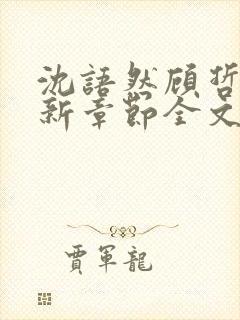 沈語然顾哲
新章節全文
賈軍龍